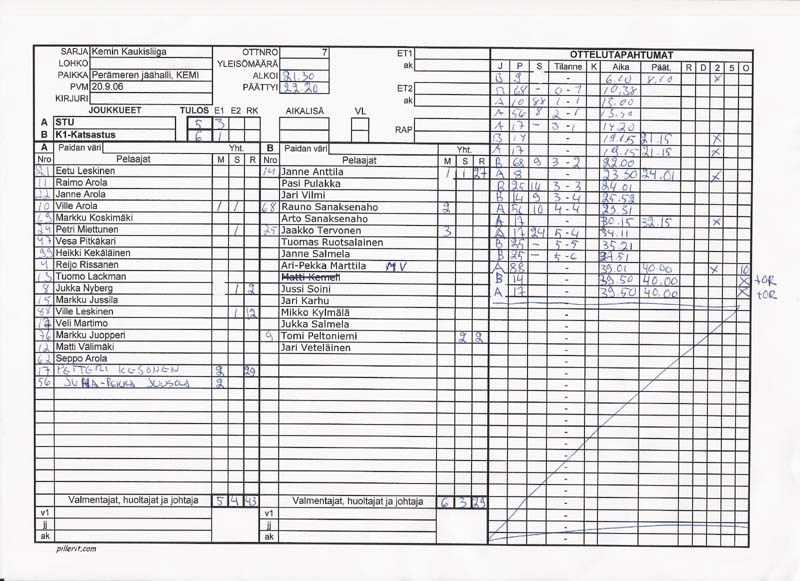 SARJA Kemin Kaukisliiga OTTNRO 7 ET1
LOHKO YLEISÖMÄÄRÄ ak
PAIKKA Perämeren jäähalli, KEMI ALKOI 21.30 ET2
PVM 20.9.06 PÄÄTTYI 22.20 ak
KIRJURI
JOUKKUEET TULOS E1 E2 RK AIKALISÄ VL RAP
A STU 5 3
B K1-Katsastus 6 1
A Paidan väri Yht. B Paidan väri Yht.
Nro Pelaajat M S R Nro Pelaajat M S R
21 Eetu Leskinen 14 Janne Anttila 1 1 27
11 Raimo Arola Pasi Pulakka
22 Janne Arola Jari Vilmi
10 Ville Arola / / 68 Rauno Sanaksenaho 2
69 Markku Koskimäki Arto Sanaksenaho
24 Petri Miettunen / 25 Jaakko Tervonen 3
47 Vesa Pitkäkari Tuomas Ruotsalainen
99 Heikki Kekäläinen Janne Salmela
4 Reijo Rissanen Ari-Pekka Marttila MV
13 Tuomo Lackman Matti Kemell
8 Jukka Nyberg 1 2 Jussi Soini
15 Markku Jussila Jari Karhu
88 Ville Leskinen 1 12 Mikko Kylmälä
Veli Martimo Jukka Salmela
76 Markku Juopperi 9 Tomi Peltoniemi 2 2
12 Matti Välimäki Jari Veteläinen
62 Seppo Arola
17 PETTERI KESONEN 2 29
56 JUHA-PEKKA 2
Valmentajat, huoltajat ja johtaja 5 4 43 Valmentajat, huoltajat ja johtaja 6 3 29
v1 v1
jj jj
ak ak
OTTELUTAPAHTUMAT
J P S Tilanne K Aika Päät. R D 2 5 O
B 9 - 6.10 8.10 x
B 68 - 0-1 10.38
A 10 88 1-1 13.00
A 56 8 2-1
A 17 - 3-1 14.20
B 14 - 19.15 21.15 x
A 17 - 19.15 21.15 x
B 68 9 3-2 22.00
A 8 - 24.01 x
B 25 14 3-3 24.01
B 14 9 3-4 25.52
A 56 10 4-4 29.31
A 17 - 30.15 32.15 x
A 17 24 5-4 34.11
B 25 - 5-5 35.21
B 25 - 5-6 37.51
A 88 - 39.01 40.00 x 10
B 14 - 39.50 40.00 x tOR
A 17 - 39.50 40.00 x tOR
pillerit.com